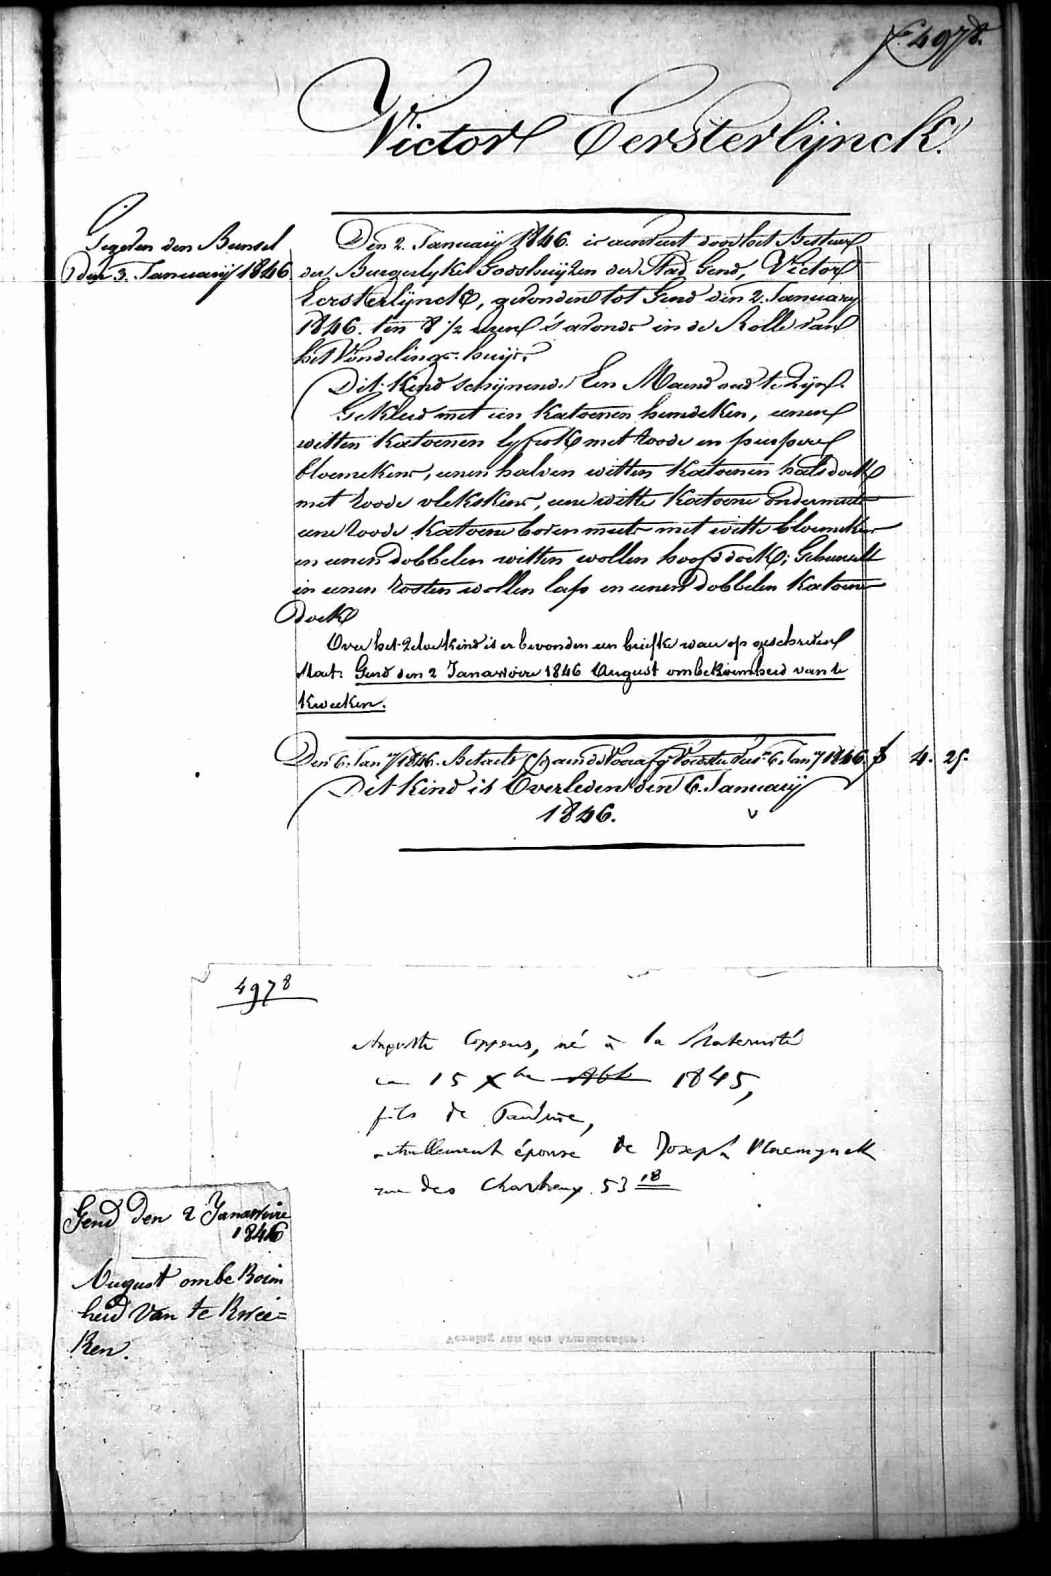 N.º 4978.
Victor Eersterlijnck.
Gegeven den Bunsel
den 3. Januarij 1846
Den 2. Januarij 1846. is aenveert door het Bestuer
der Burgerlyke Godshuijzen der Stad Gend, Victor
Eersterlijnck, gevonden tot Gend den 2. January
1846. ten 8 1/2 uren s'avonds in de Rolle van
het Vondelings-huijs.
Dit Kind schijnende Een Maend oud te Zijn.
Gekleed met een Katoenen hemdeken, eenen
witten Katoenen lyfrok met roode en purpere
bloemekens, eenen halven witten Katoenen halsdoek
met roode vlekskens, eene witte Katoene ondermuts
eene roode Katoene boven muts met witte bloemekens
en eenen dobbelen witten wollen hoofddoek; Gebunselt
in eenen rosten wollen lap en eenen dobbelen Katoenen
doek
Over het Zelve kind is er bevonden een briefke waer op geschreven
staat: Gend den 2 Janawoire 1846 August ombekwimheid van te
kweeken.
Den 6. Jany 1846. Betaelt 6. Jany 1846. f 4. 25.
Dit Kind is Overleden den 6. January
1846.
4978
Auguste Coppens, né à la Maternité
le 15 Xbre 1845,
fils de Pauline,
actuellement épouse de Joseph
rue des Chartreux 53 18
Gend den 2 Janawoire
1846
August ombekwim
heid van te kwee=
ken.